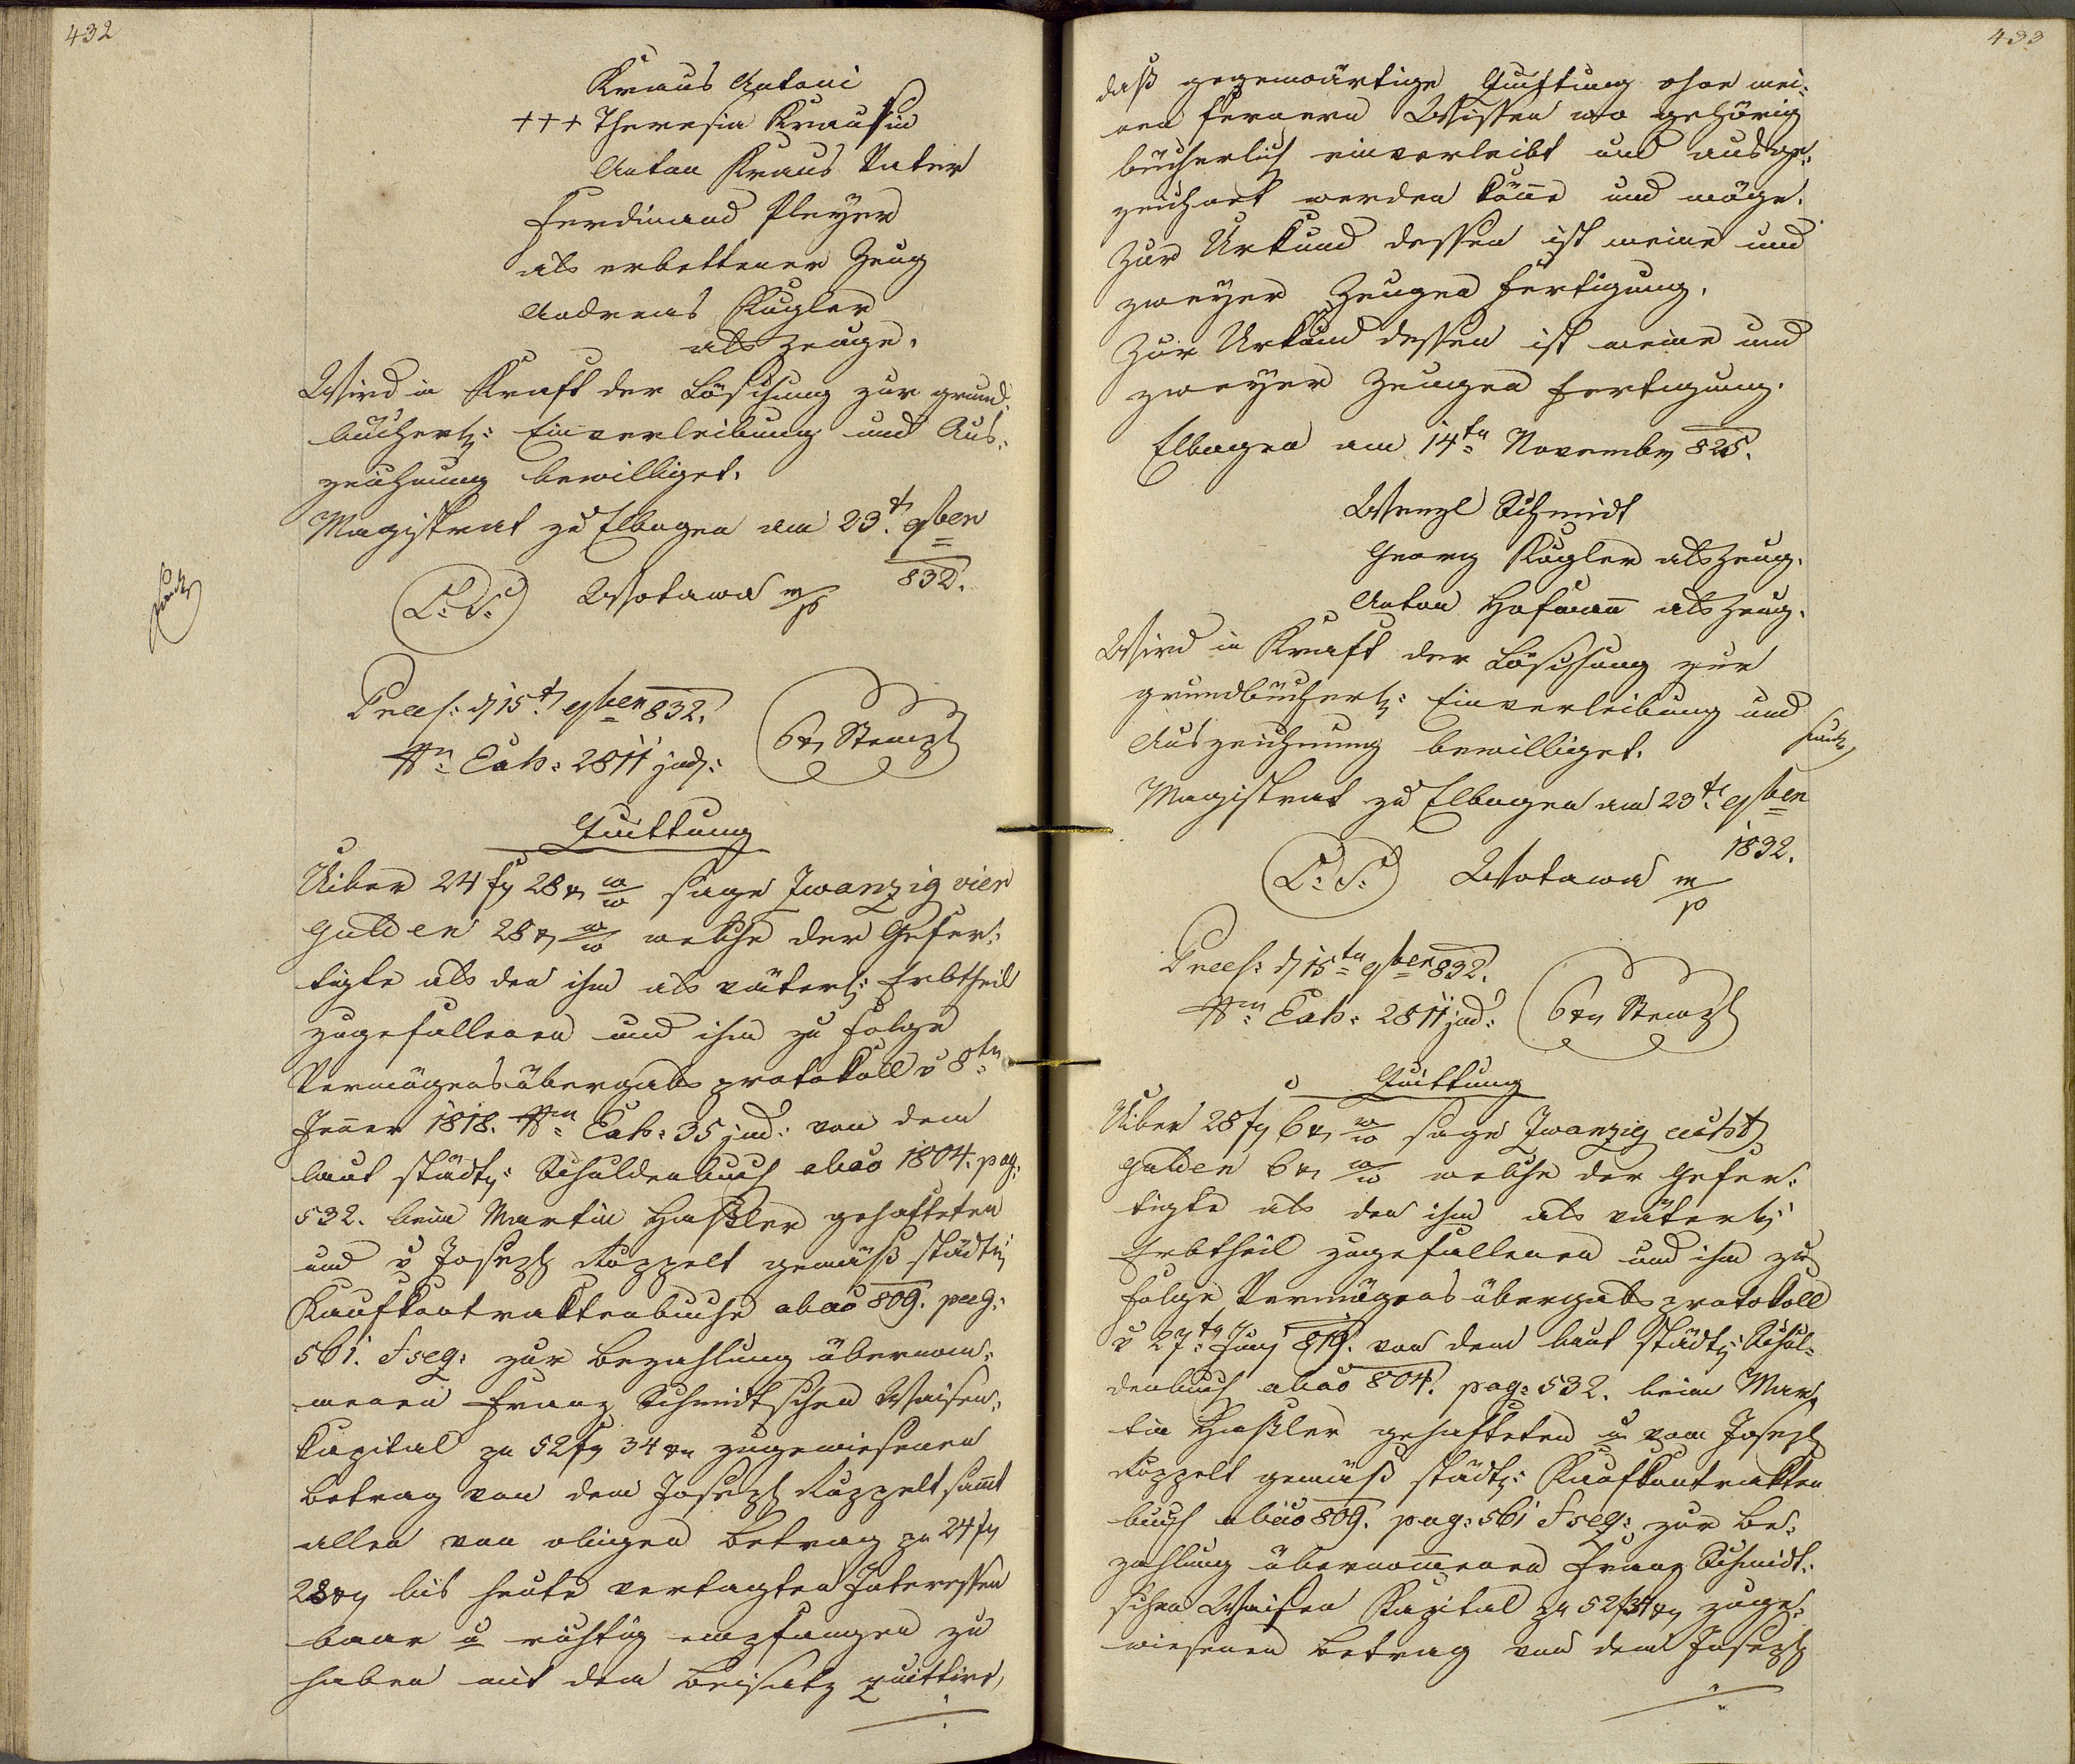 432
Kraus Antoni
+++ Theresia Krausin
Anton Kraus Vater
Ferdinand Pleyer
als erbettener Zeug
Andreas Kugler
als Zeuge.
Wird in Kraft der Löschung zur grund-
bücherl: Einverleibung und Aus-
zeichnung bewilliget.
Magistrat zu Elbogen am 23t 9ber
832.
L: S: Wotawa m/p
Praes: d 15t 9ber 832.
Nro Exh: 2811 jud:
6 xr Stempl
Quittung
Uiber 24 fl 28 xr W/W sage Zwanzig vier
Gulden 28 xr W/W welche der Gefer-
tigte als den ihm als väterl: Erbtheil
zugefallenen und ihm zu Folge
Vermögensübergabs protokoll v 8ten
Jenner 1818. Nro Exh: 35 jud: von dem
laut städt: Schuldenbuch abao 1804. pag:
532. beim Martin Haßler gehafteten
und v Joseph Ruppelt gemäß städt:
Kaufkontraktenbuche abao 809. pag:
561. f seq: zur Bezahlung übernom-
menen Franz Schmidtschen Waisen-
kapital zu 52 fl 34 xr zugewiesenen
Betrag von dem Joseph Ruppelt sammt
allen von obigen Betrag zu 24 fl
28 xr bis heute vertagten Interessen
baar u richtig empfangen zu
haben mit dem Beisatz quittire,
433
daß gegenwärtige Quittung ohne mei-
nen fernern Wissen wo gehörig
bücherlich einverleibt und ausge-
zeichnet werden könne und möge.
Zur Urkund dessen ist meine und
zweyer Zeugen Fertigung.
Zur Urkund dessen ist meine und
zweyer Zeugen Fertigung.
Elbogen am 14ten November 825.
Wenzl Schmidt
Georg Kugler als Zeug.
Anton Hofmann als Zeug.
Wird in Kraft der Löschung zur
grundbücherl: Einverleibung und
Auszeichnung bewilliget.
Magistrat zu Elbogen am 23t 9ber
1832.
L: S: Wotawa m/p
Praes: d 15ten 9ber 832.
Nro Exh: 2811 jud:
6 xr Stempl
Quittung
Uiber 28 fl 6 xr W/W sage Zwanzig acht
Gulden 6 xr W/W welche der Gefer-
tigte als den ihm als väterl:
Erbtheil zugefallenen und ihm zu
Folge Vermögens übergabs protokoll
v 27ten Juny 819. von dem laut städt: Schul-
denbuch abao 804. pag: 532. beim Mar-
tin Haßler gehafteten u vom Joseph
Ruppelt gemäß städt: Kaufkontrakten
buch abao 809. pag: 561 f seq: zur Be-
zahlung übernommenen Franz Schmidt-
schen Waisen Kapital zu 52 f 34 xr zuge-
wiesenen Betrag von dem Joseph